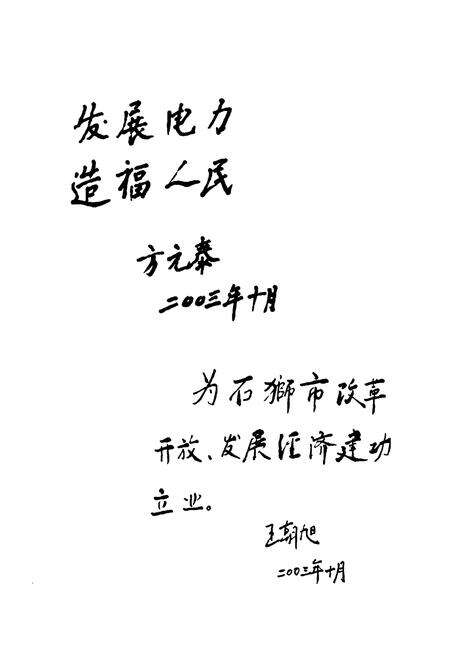 发展电力
造福人民
方元泰
二00三年十月
为石獅市改革
开放、发展经济建功
立业。
王朝旭
二00三年十月